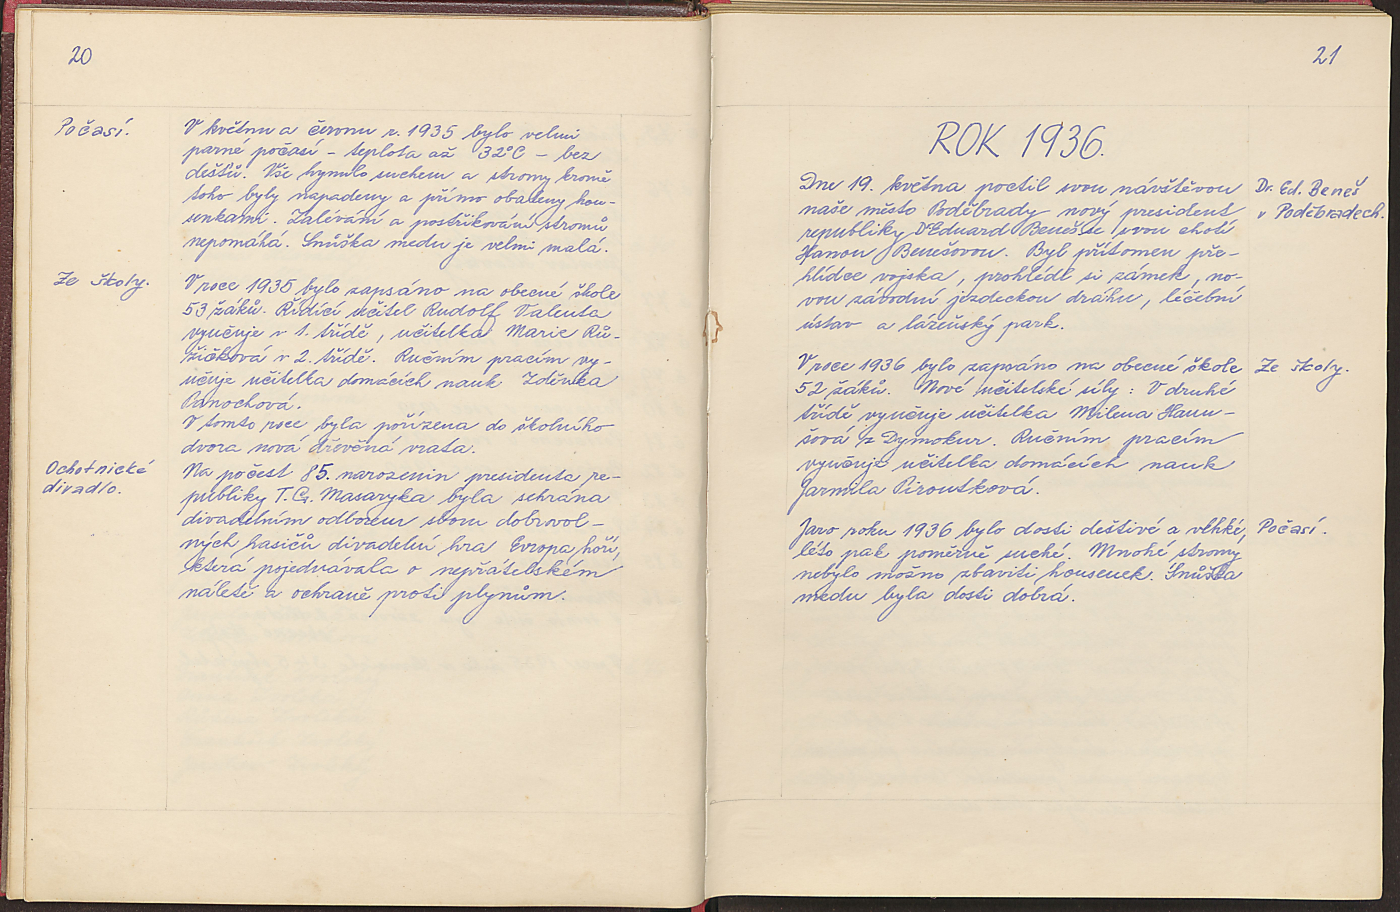 20
Počasí.
V květnu a červnu r. 1935 bylo velmi
parné počasí - teplota až 32°C - bez
dešťů. Vše hynulo suchem a stromy kromě
toho byly napadeny a přímo obaleny hou-
senkami. Zalévání a postřikování stromů
nepomáhá. Snůška medu je velmi malá.
Ze školy.
V roce 1935 bylo zapsáno na obecné škole
53 žáků. Řídící učitel Rudolf Valenta
vyučuje v 1. třídě, učitelka Marie Rů-
žičková v 2. třídě. Ručním pracím vy-
učuje učitelka domácích nauk Zdeňka
Panochová.
V tomto roce byla pořízena do školního
dvora nová dřevěná vrata.
Ochotnické
divadlo.
Na počest 85. narozenin presidenta re-
publiky T. G. Masaryka byla sehrána
divadelním odborem sboru dobrovol-
ných hasičů divadelní hra Evropa hoří,
která pojednávala o nepřátelském
náletě a ochraně proti plynům.
21
ROK 1936.
Dne 19. května poctil svou návštěvou
naše město Poděbrady nový president
republiky Dr Eduard Beneš se svou chotí
Hanou Benešovou. Byl přítomen pře-
hlídce vojska, prohlédl si zámek, no-
vou závodní jezdeckou dráhu, léčební
ústav a lázeňský park.
Dr. Ed. Beneš
v Poděbradech.
V roce 1936 bylo zapsáno na obecné škole
52 žáků. Nové učitelské síly: V druhé
třídě vyučuje učitelka Milena Hanu-
šová z Dymokur. Ručním pracím
vyučuje učitelka domácích nauk
Jarmila Piroutková.
Ze školy.
Jaro roku 1936 bylo dosti deštivé a vlhké,
léto pak poměrně suché. Mnohé stromy
nebylo možno zbaviti housenek. Snůška
medu byla dosti dobrá.
Počasí.